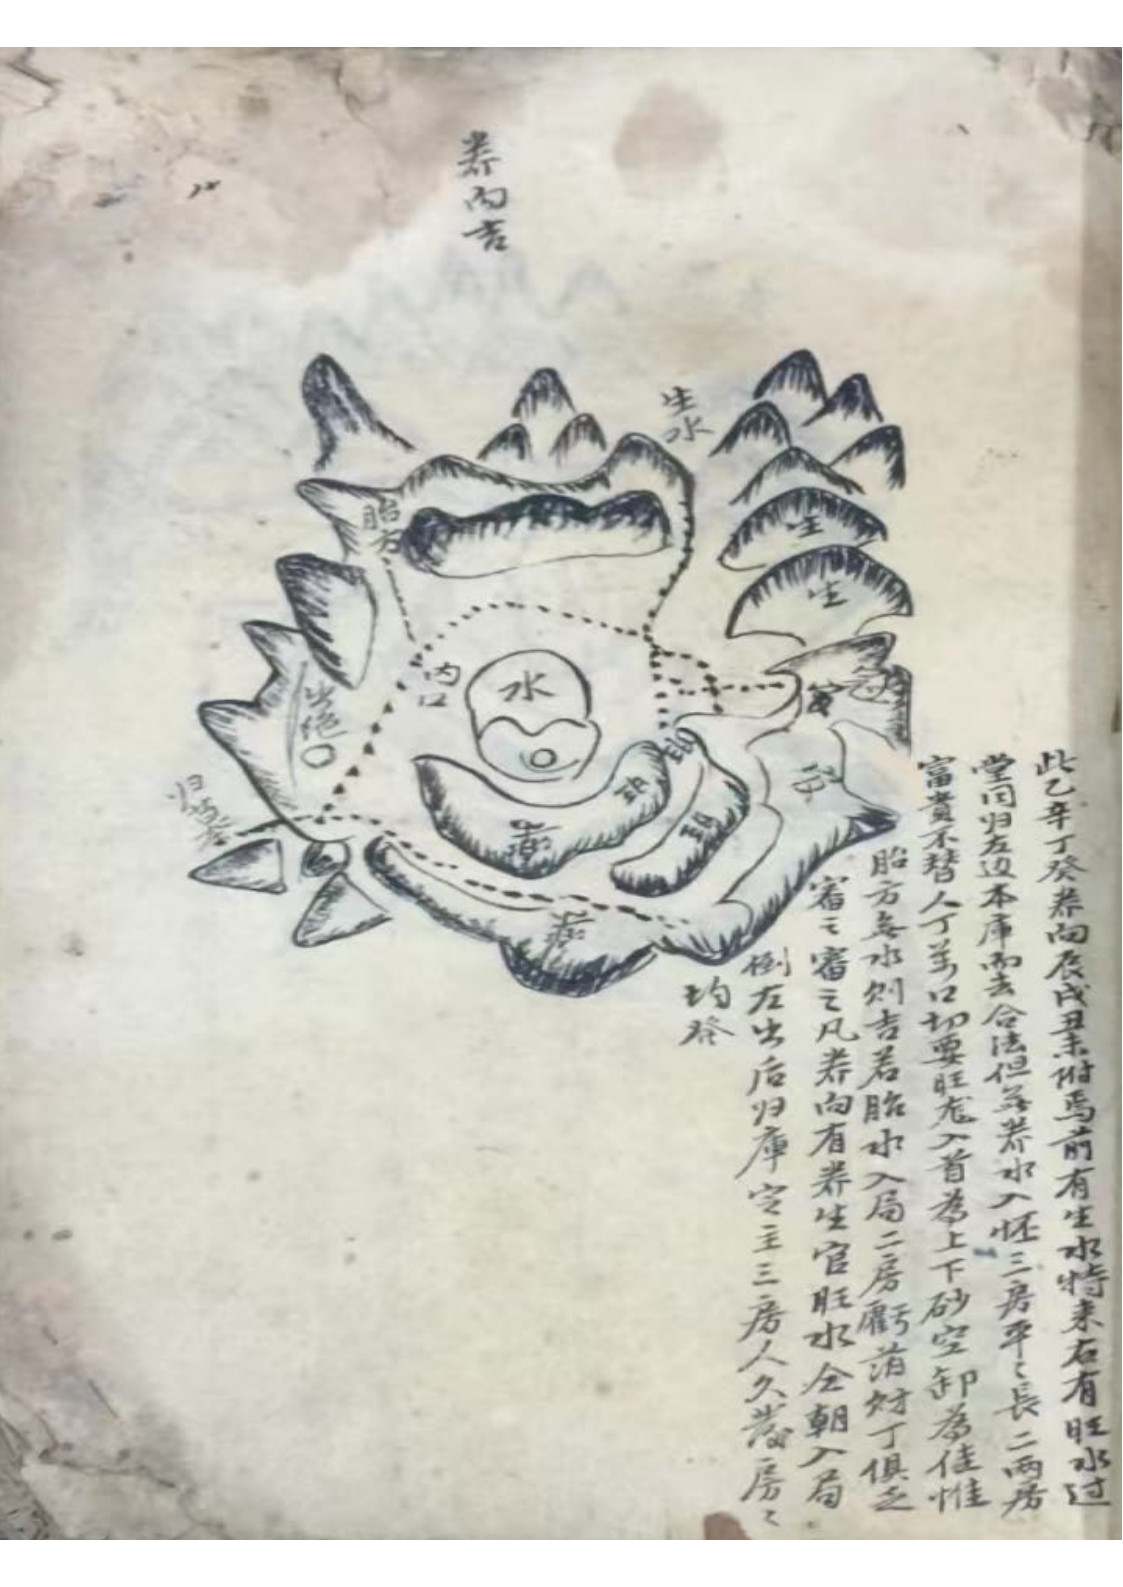 养向吉
生水
胎方
生
生
官
冠
内口
水
出绝
归
旺
旺
旺
衰
此乙辛丁癸养向辰戌丑未附焉前有生水特来右有旺水过
堂同归左边本库而去合法但无养水入怀三房平々長二両房
富貴不替人丁萬口切要旺龙入首為上下砂空卸為佳惟
胎方無水則吉若胎水入局二房虧落财丁俱乏
審之審之凡养向有养生官旺水仝朝入局
倒左出后归庫定主三房人久發房々
均發